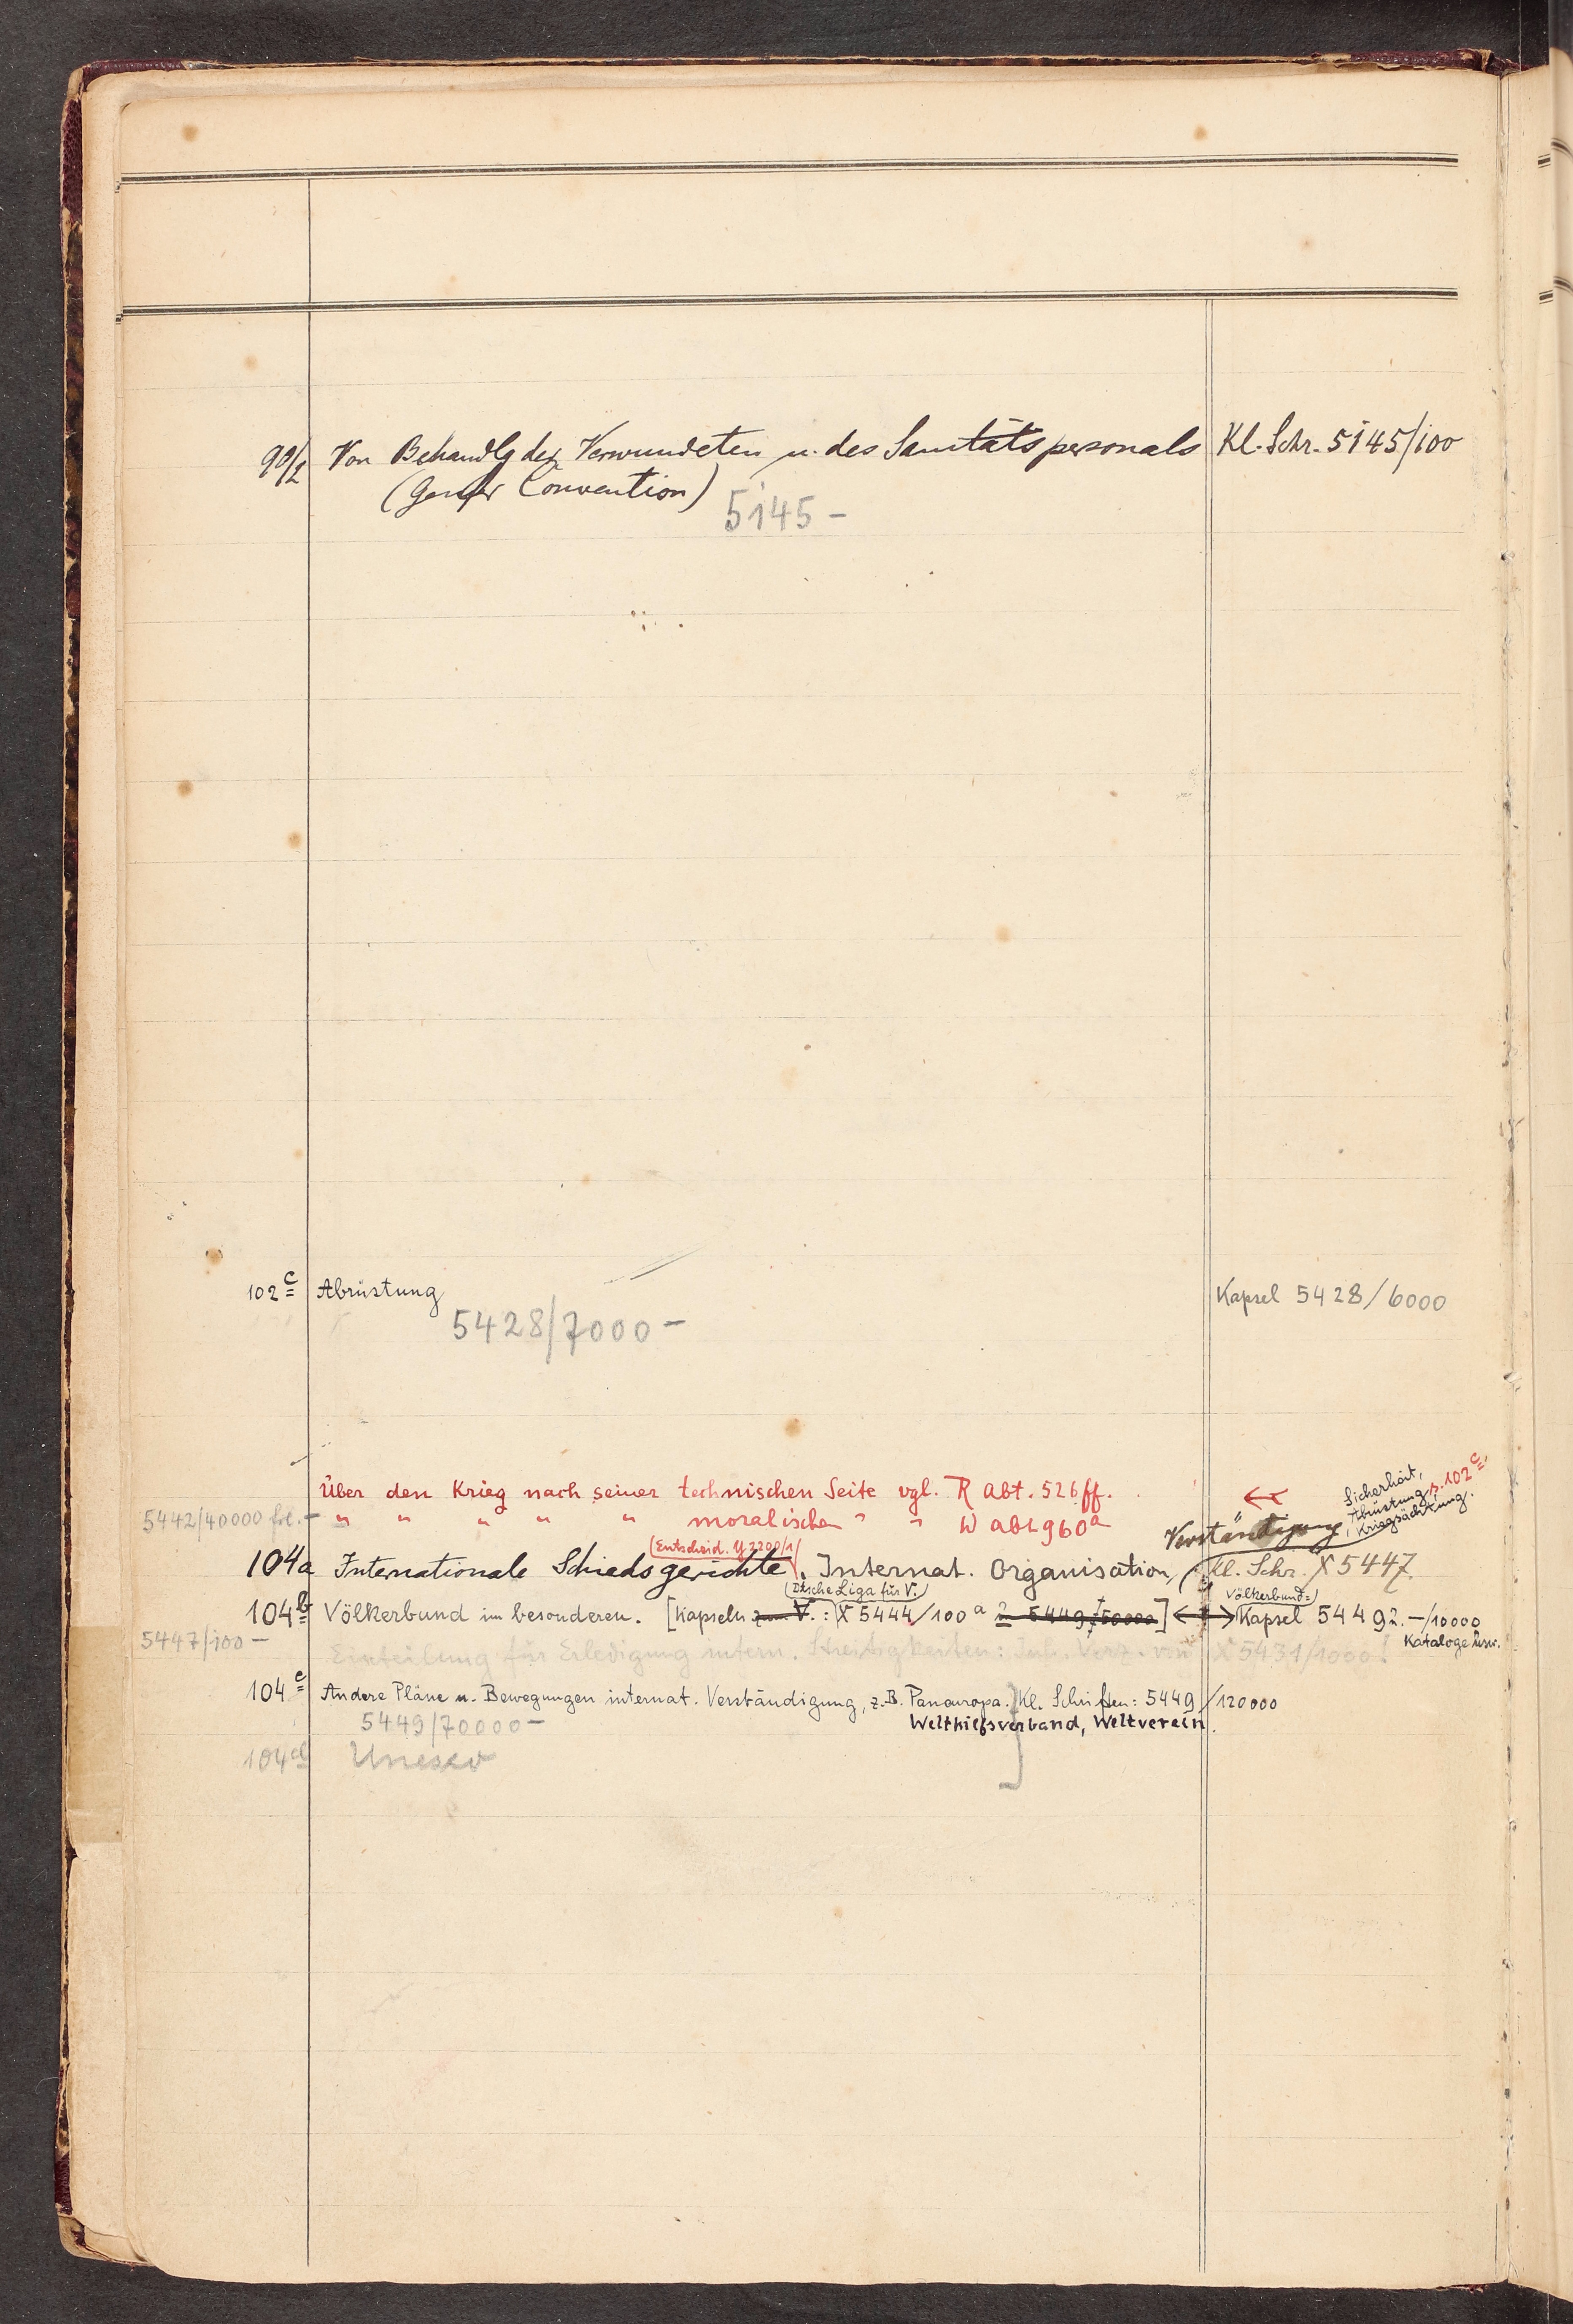 99/2 Von Behandlg der Verwundeten u. des Sanitätspersonals Kl. Schr. 5145/100
(Genfer Convention)
5145 –
102c Abrüstung Kapsel 5428/6000
5428/7000 –
Über den Krieg nach seiner technischen Seite vgl. R Abt. 526 ff.
Sicherheit,
Abrüstung s. 102c.
Kriegsächtung.
5442/40000 – " " " " " moralischen " " W Abt. 960a
Verständigung,
(Entscheid. Y 2200/1)
104a Internationale Schiedsgerichte. Internat. Organisation, Kl. Schr. X 5447.
(Dtsche Liga für V.) Völkerbund:
104b Völkerbund im besonderen. [Kapseln V.: X 5444/100a 2 5449/50000] Kapsel 54492.–/10000
Kataloge usw.
5447/100 –
Einteilung für Erledigung intern. Streitigkeiten: Inh. Verz. von X 5431/1000!
104c Andere Pläne u. Bewegungen internat. Verständigung, z.B. Paneuropa. Kl. Schriften: 5449/120000
5449/70000 – Welthilfsverband, Weltverein.
104d Unesco